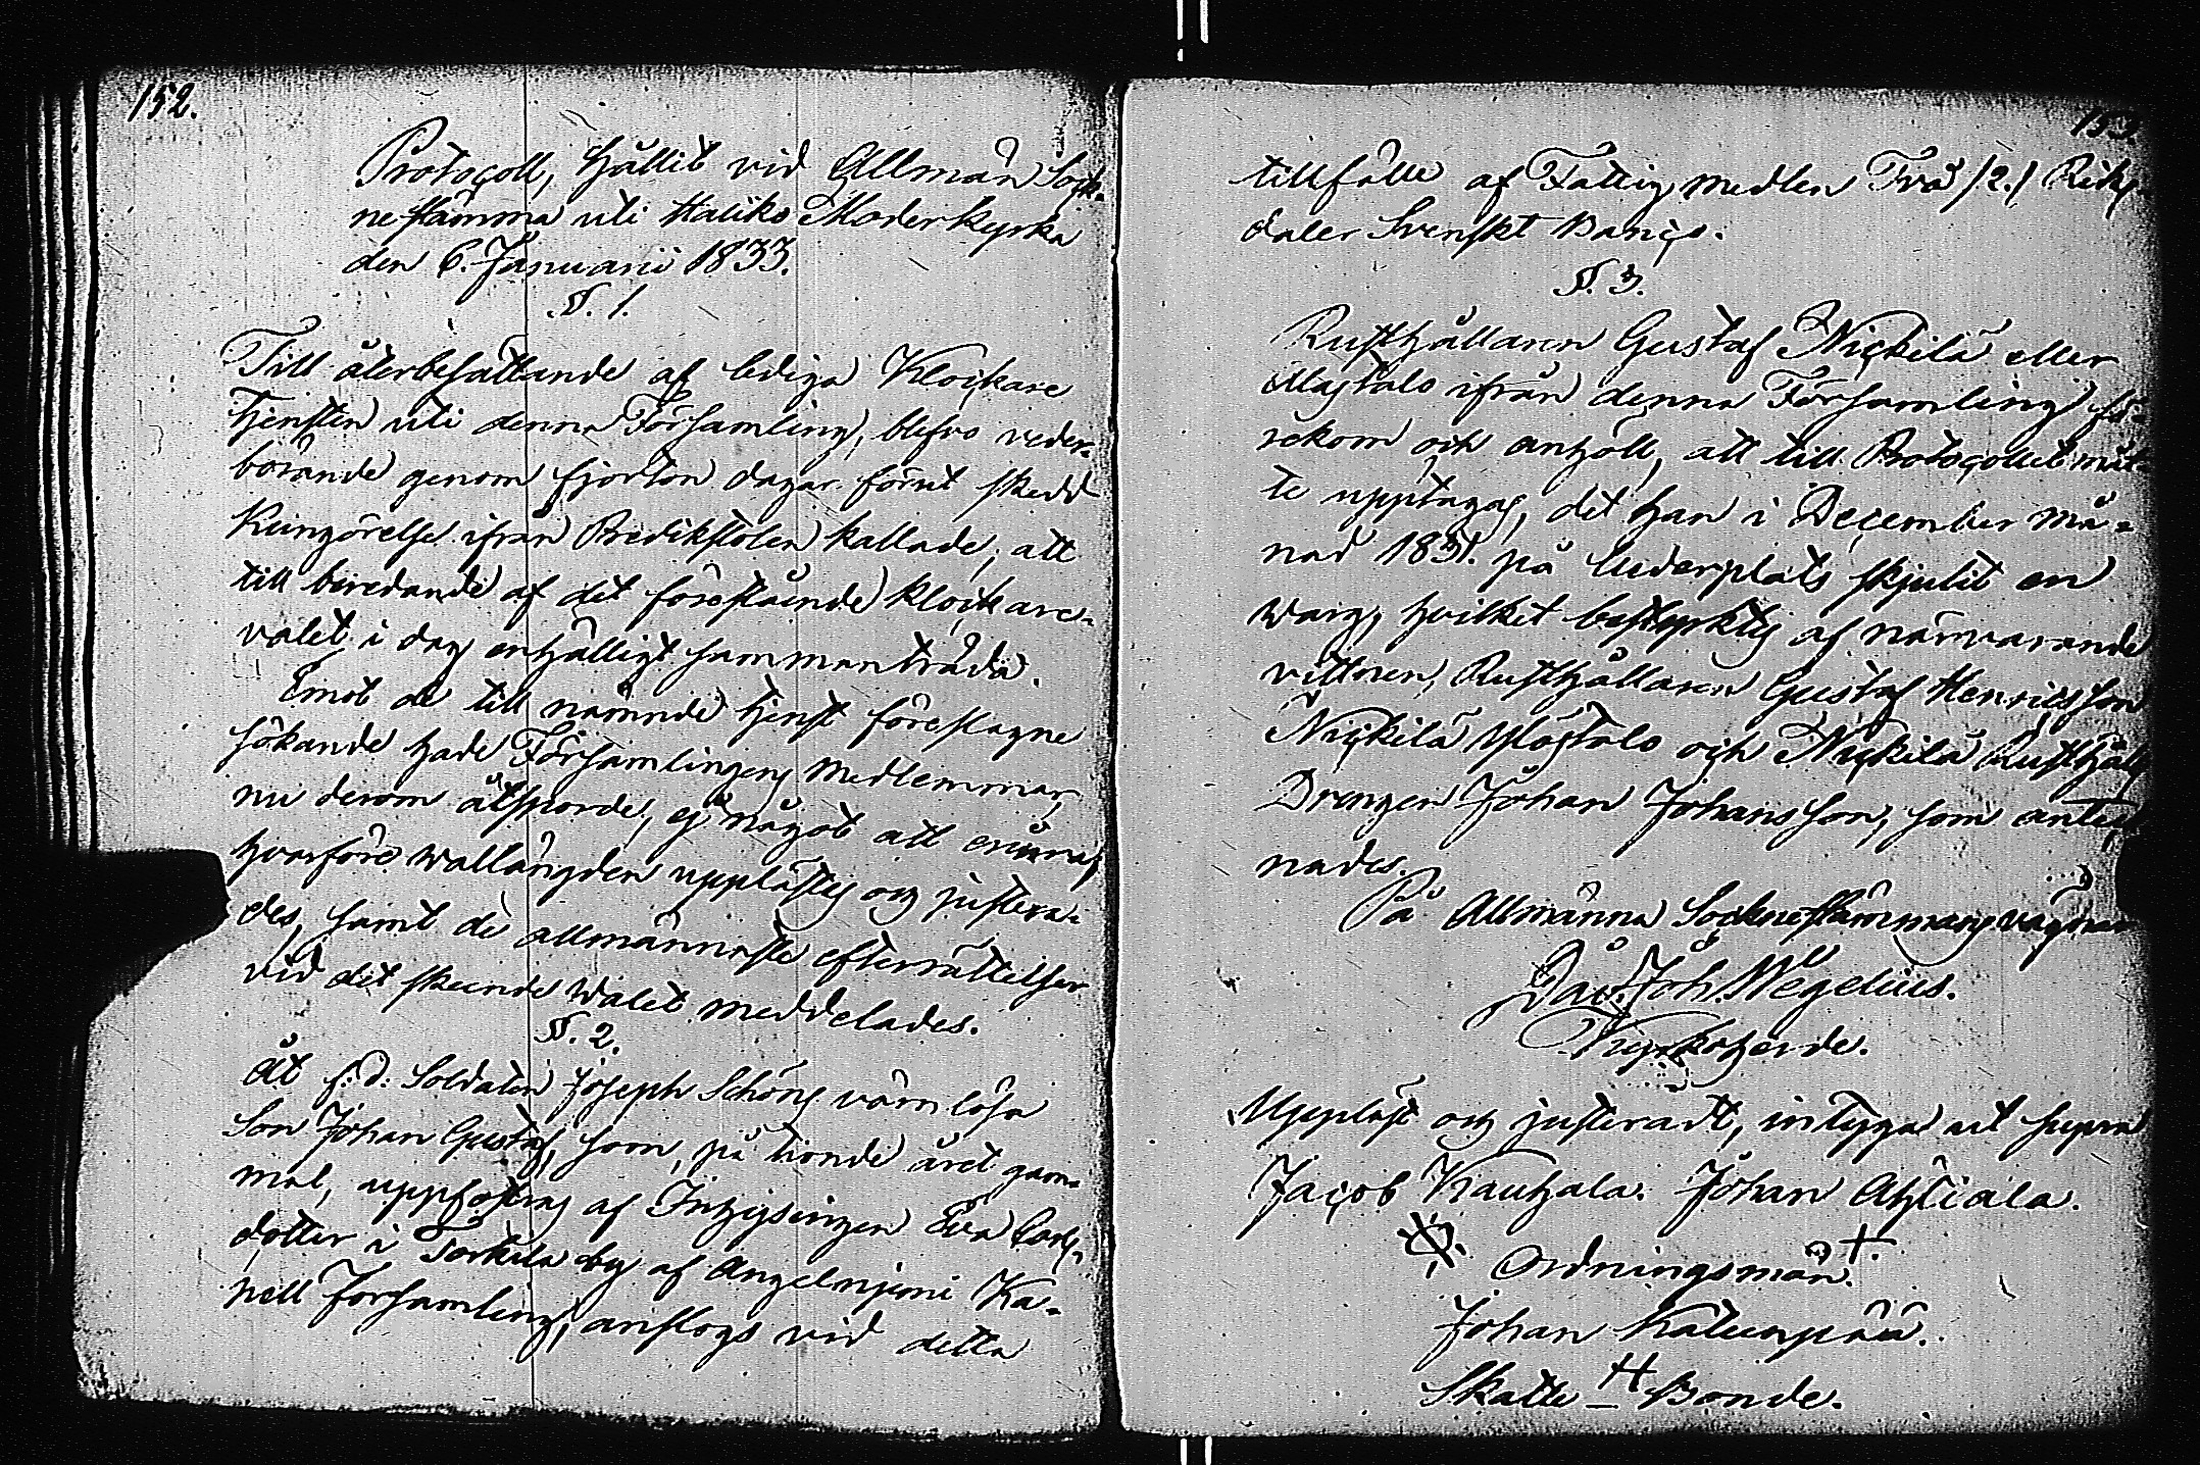 152.
Protocoll, hållit vid Allmän Sock-
nestämma uti Haliko Moderkyrka
den 6. Januarii 1833.
§. 1.
Till återbesättande af lediga Klockare
tjensten uti denna Församling, blefvo veder-
börande genom fjorton dagar förut skedd
Kungörelse ifrån Predikstolen kallade, att
till beredande af det förestående klockare-
valet i dag enhälligt sammanträda.
Emot de till nämnde tjenst föreslagne
sökande hade Församlingens medlemmar,
nu derom åtsporde, ej något att erinra,
hvarföre wallängden upplästes och justera-
des, samt de allmännaste efterrättelser
vid det skeende walet meddelades.
§. 2.
Åt f:d: Soldaten Joseph Schöns värnlösa
Son Johan Gustaf, som, på tionde året gam-
mal, uppfostras af Inhysingen Eva Carls-
dotter i Torkila by af Angelnjemi Ka-
pell Församling, anslogs vid detta
153.
tillfälle af Fattig medlen Två /2./ Riks
daler Svenskt Banço.
§. 3.
Rusthållaren Gustaf Nickilä eller
Majtalo ifrån denna Församling fö-
rekom och anhöll, att till Protocollet måt-
te upptagas, det han i December må-
nad 1831. på luderplats skjutit en
Warg, hvilket bestyrktes af närvarande
vittnen, Rusthållaren Gustaf Henricsson
Nickilä Ylöstalo och Nickilä Rusthålls
Drengen Johan Johansson, som anteck
nades.
På Allmänna Socknestämmans vägnar
Dav. Joh. Wegelius.
Kyrkoherde.
Uppläst och justeradt, intyga ut supra
Jacob Kauhala. Johan Ahtiala.
Ordningsmän.
Johan Katunpää.
Skatte-Bonde.